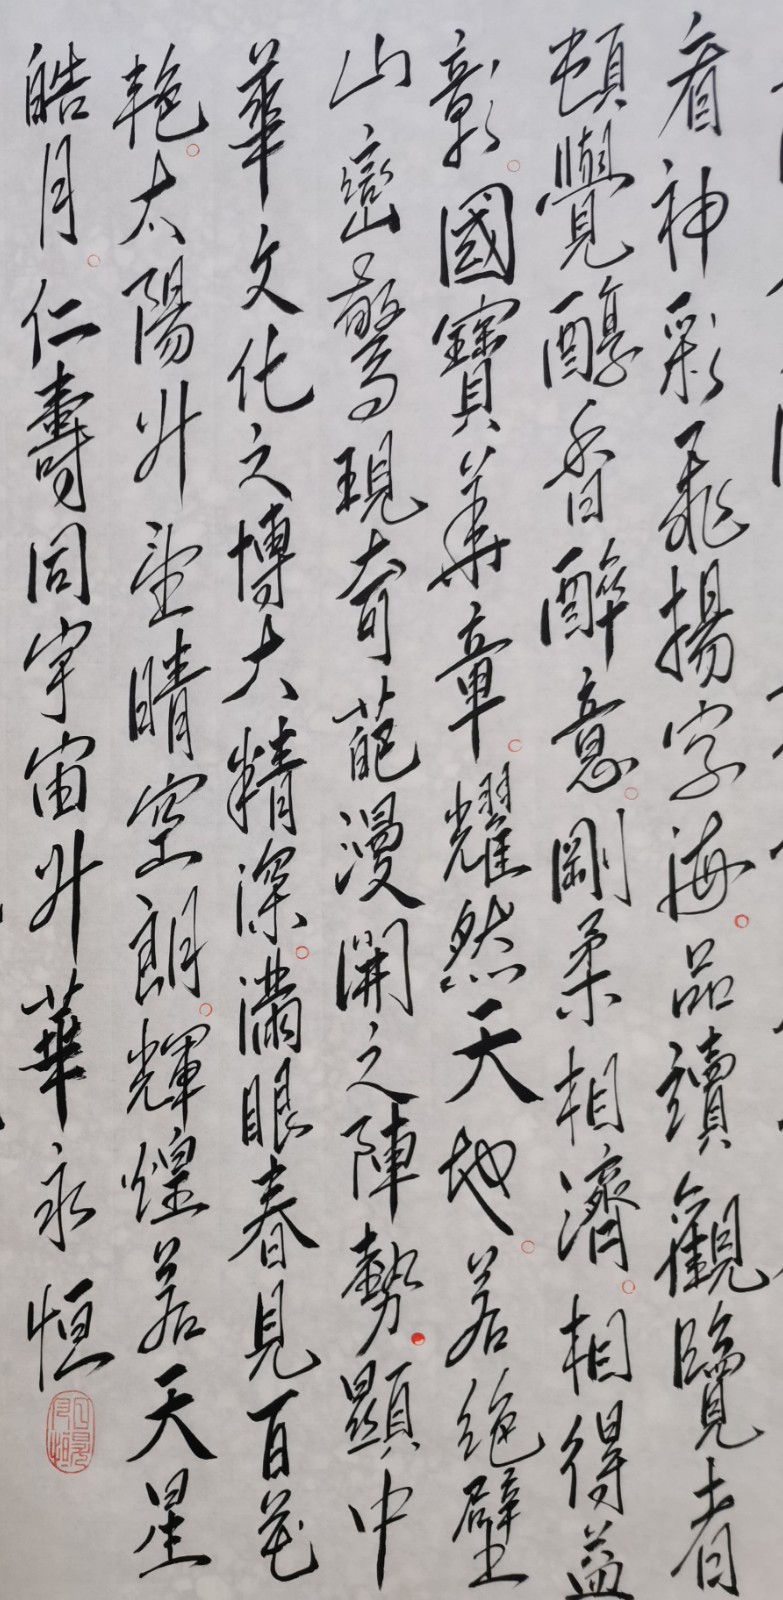 看神彩飛揚字海品讀觀覽者
頓覺醇香醉意剛柔相濟相得益
彰國寶華章耀然天地若絶壁
山巒驚現奇葩漫開之陣勢顯中
華文化之博大精深滿眼春見百花
艳太陽升望晴空朗輝煌若天星
皓月仁壽同宇宙升華永恒